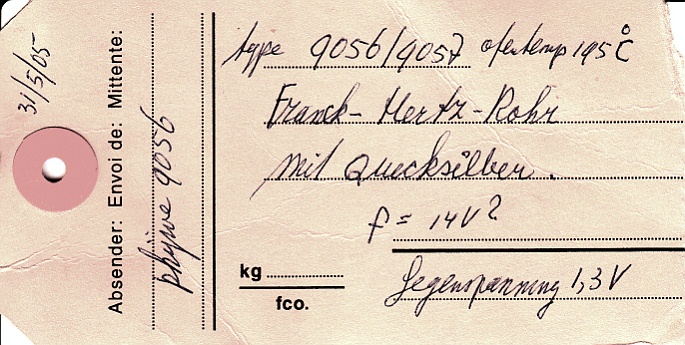 31/5/05
Absender: Envoi de: Mittente:
phÿwe 9056
type 9056/9057 ofentemp 195°C
Franck-Hertz-Rohr
mit Quecksilber.
f = 14V?
kg
fco.
Gegenspannung 1,3V